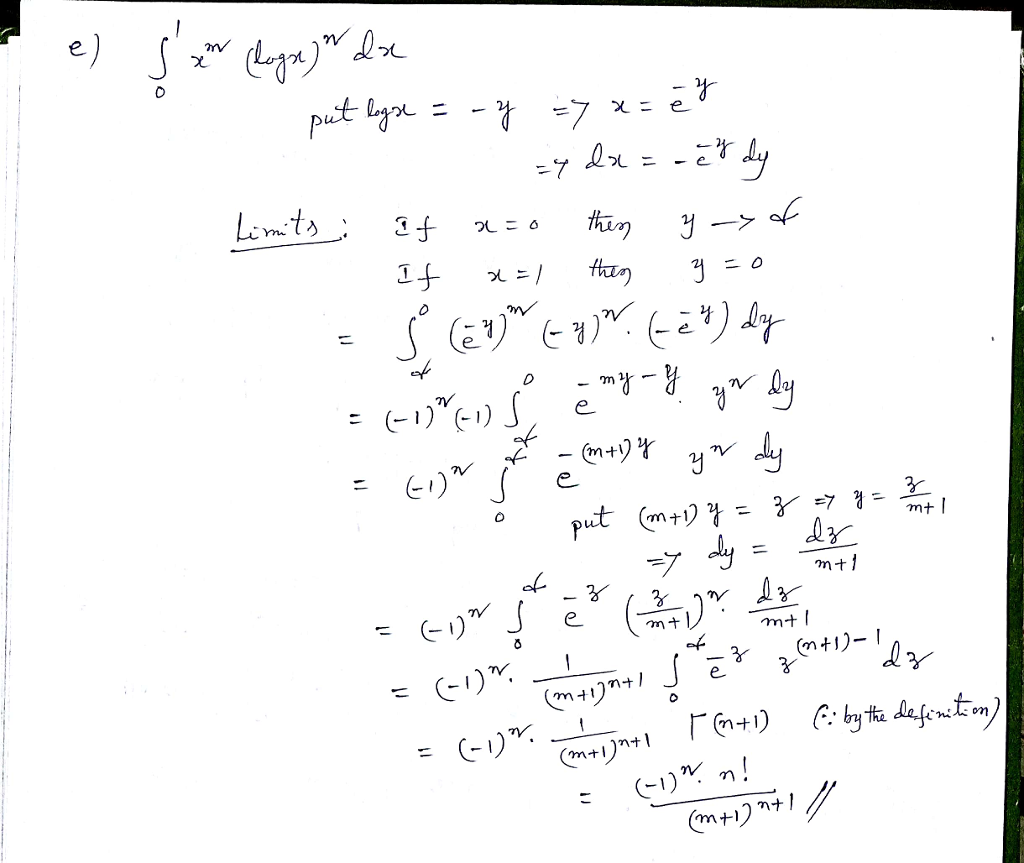 e) ∫₀¹ xᵐ (logx)ⁿ dx
put logx = -y => x = e^-y
=> dx = -e^-y dy
Limits : If x=0 then y -> ∞
If x=1 then y = 0
= ∫_∞^0 (e^-y)^m (-y)^n. (-e^-y) dy
= (-1)^n (-1) ∫_∞^0 e^-my-y. y^n dy
= (-1)^n ∫_0^∞ e^-(m+1)y y^n dy
put (m+1)y = z => y = z/m+1
=> dy = dz/m+1
= (-1)^n ∫_0^∞ e^-z (z/m+1)^n. dz/m+1
= (-1)^n. 1/(m+1)^n+1 ∫_0^∞ e^-z z^(n+1)-1 dz
= (-1)^n. 1/(m+1)^n+1 Γ(n+1) (∵ by the definition)
= (-1)^n. n!/(m+1)^n+1 //